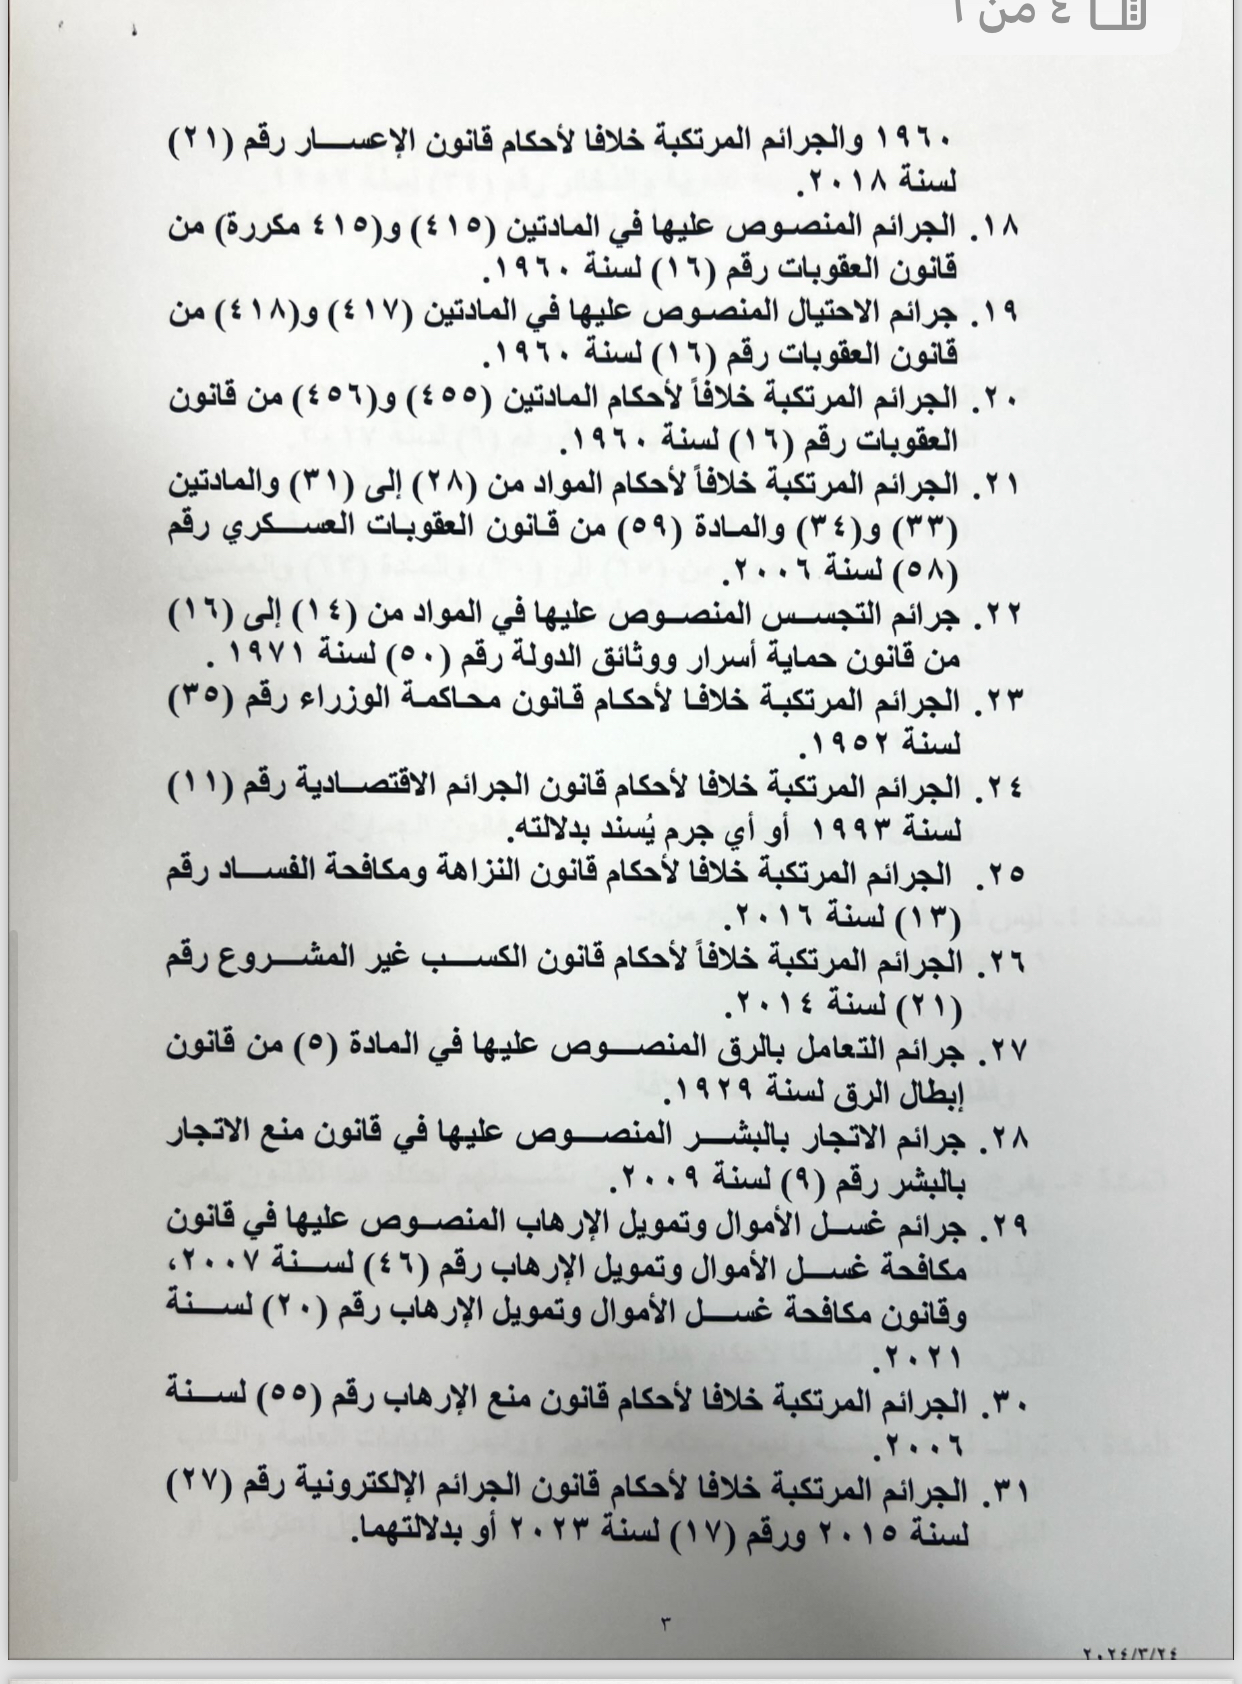 ٤ من ١
١٩٦٠ والجرائم المرتكبة خلافا لأحكام قانون الإعسار رقم (٢١)
لسنة ٢٠١٨.
١٨. الجرائم المنصوص عليها في المادتين (٤١٥) و(٤١٥ مكررة) من
قانون العقوبات رقم (١٦) لسنة ١٩٦٠.
١٩. جرائم الاحتيال المنصوص عليها في المادتين (٤١٧) و(٤١٨) من
قانون العقوبات رقم (١٦) لسنة ١٩٦٠.
٢٠. الجرائم المرتكبة خلافاً لأحكام المادتين (٤٥٥) و(٤٥٦) من قانون
العقوبات رقم (١٦) لسنة ١٩٦٠.
٢١. الجرائم المرتكبة خلافاً لأحكام المواد من (٢٨) إلى (٣١) والمادتين
(٣٣) و(٣٤) والمادة (٥٩) من قانون العقوبات العسكري رقم
(٥٨) لسنة ٢٠٠٦.
٢٢. جرائم التجسس المنصوص عليها في المواد من (١٤) إلى (١٦)
من قانون حماية أسرار ووثائق الدولة رقم (٥٠) لسنة ١٩٧١ .
٢٣. الجرائم المرتكبة خلافا لأحكام قانون محاكمة الوزراء رقم (٣٥)
لسنة ١٩٥٢.
٢٤. الجرائم المرتكبة خلافا لأحكام قانون الجرائم الاقتصادية رقم (١١)
لسنة ١٩٩٣ أو أي جرم يُسند بدلالته.
٢٥. الجرائم المرتكبة خلافا لأحكام قانون النزاهة ومكافحة الفساد رقم
(١٣) لسنة ٢٠١٦.
٢٦. الجرائم المرتكبة خلافاً لأحكام قانون الكسب غير المشروع رقم
(٢١) لسنة ٢٠١٤.
٢٧. جرائم التعامل بالرق المنصوص عليها في المادة (٥) من قانون
إبطال الرق لسنة ١٩٢٩.
٢٨. جرائم الاتجار بالبشر المنصوص عليها في قانون منع الاتجار
بالبشر رقم (٩) لسنة ٢٠٠٩.
٢٩. جرائم غسل الأموال وتمويل الإرهاب المنصوص عليها في قانون
مكافحة غسل الأموال وتمويل الإرهاب رقم (٤٦) لسنة ٢٠٠٧،
وقانون مكافحة غسل الأموال وتمويل الإرهاب رقم (٢٠) لسنة
٢٠٢١.
٣٠. الجرائم المرتكبة خلافا لأحكام قانون منع الإرهاب رقم (٥٥) لسنة
٢٠٠٦.
٣١. الجرائم المرتكبة خلافا لأحكام قانون الجرائم الإلكترونية رقم (٢٧)
لسنة ٢٠١٥ ورقم (١٧) لسنة ٢٠٢٣ أو بدلالتهما.
٣
٢٠٢٤/٣/٢٤